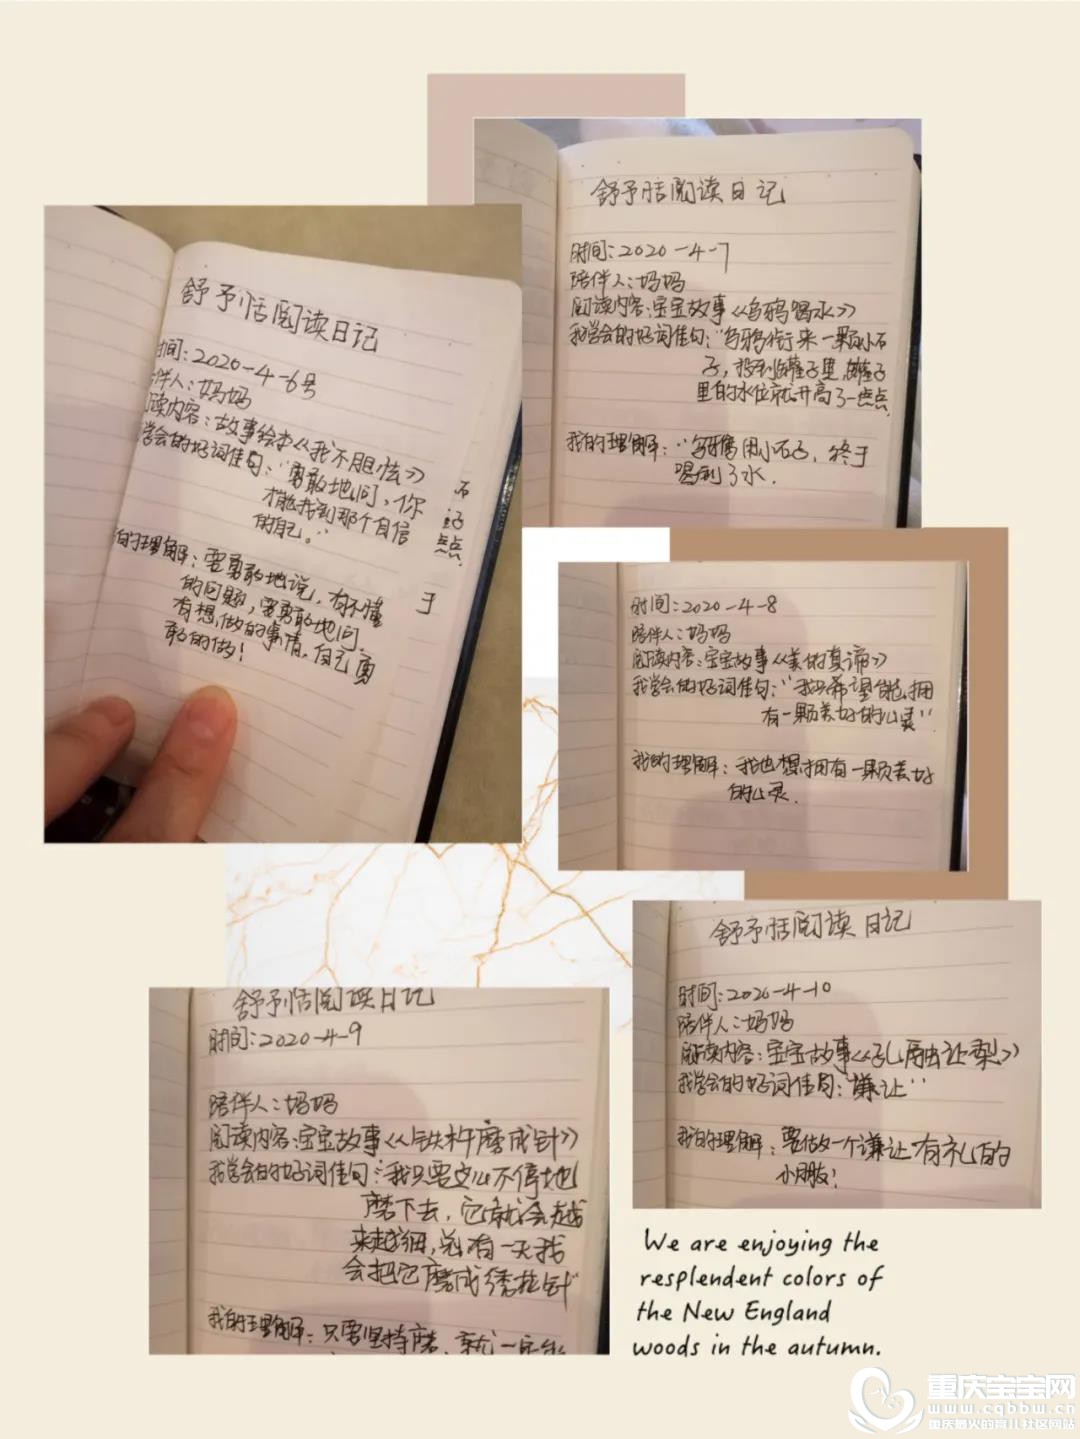 舒予恬阅读日记
时间:2020-4-6号
伴人:妈妈
读内容:故事绘本《我不胆怯》
学会的好词佳句:"勇敢地问,你
才能找到那个自信
的自己。"
的理解:要勇敢地说,有不懂
的问题,要勇敢地问.
有想做的事情,
敢的做!
于
舒予恬阅读日记
时间:2020-4-7
陪伴人:妈妈
阅读内容:宝宝故事《乌鸦喝水》
我学会的好词佳句:"乌鸦衔来一颗小石
子,投到罐子里,罐子
里的水位就升高了一点点.
我的理解:"乌鸦用小石子,终于
喝到了水.
时间:2020-4-8
陪伴人:妈妈
阅读内容:宝宝故事《美的真谛》
我学会的好词佳句:"我只希望能拥
有一颗美好的心灵"
我的理解:我也想拥有一颗美好
的心灵.
舒予恬阅读日记
时间:2020-4-9
陪伴人:妈妈
阅读内容:宝宝故事《铁杵磨成针》
我学会的好词佳句:"我只要不停地
磨下去,它就会越
来越细,总有一天我
会把它磨成绣花针"
我的理解:只要坚持磨,就一定能
舒予恬阅读日记
时间:2020-4-10
陪伴人:妈妈
阅读内容:宝宝故事《孔融让梨》
我学会的好词佳句:"谦让"
我的理解:要做一个谦让有礼的
小朋友!
We are enjoying the
resplendent colors of
the New England
woods in the autumn.
重庆宝宝网
www.cqbbw.cn
重庆最火的育儿社区网站